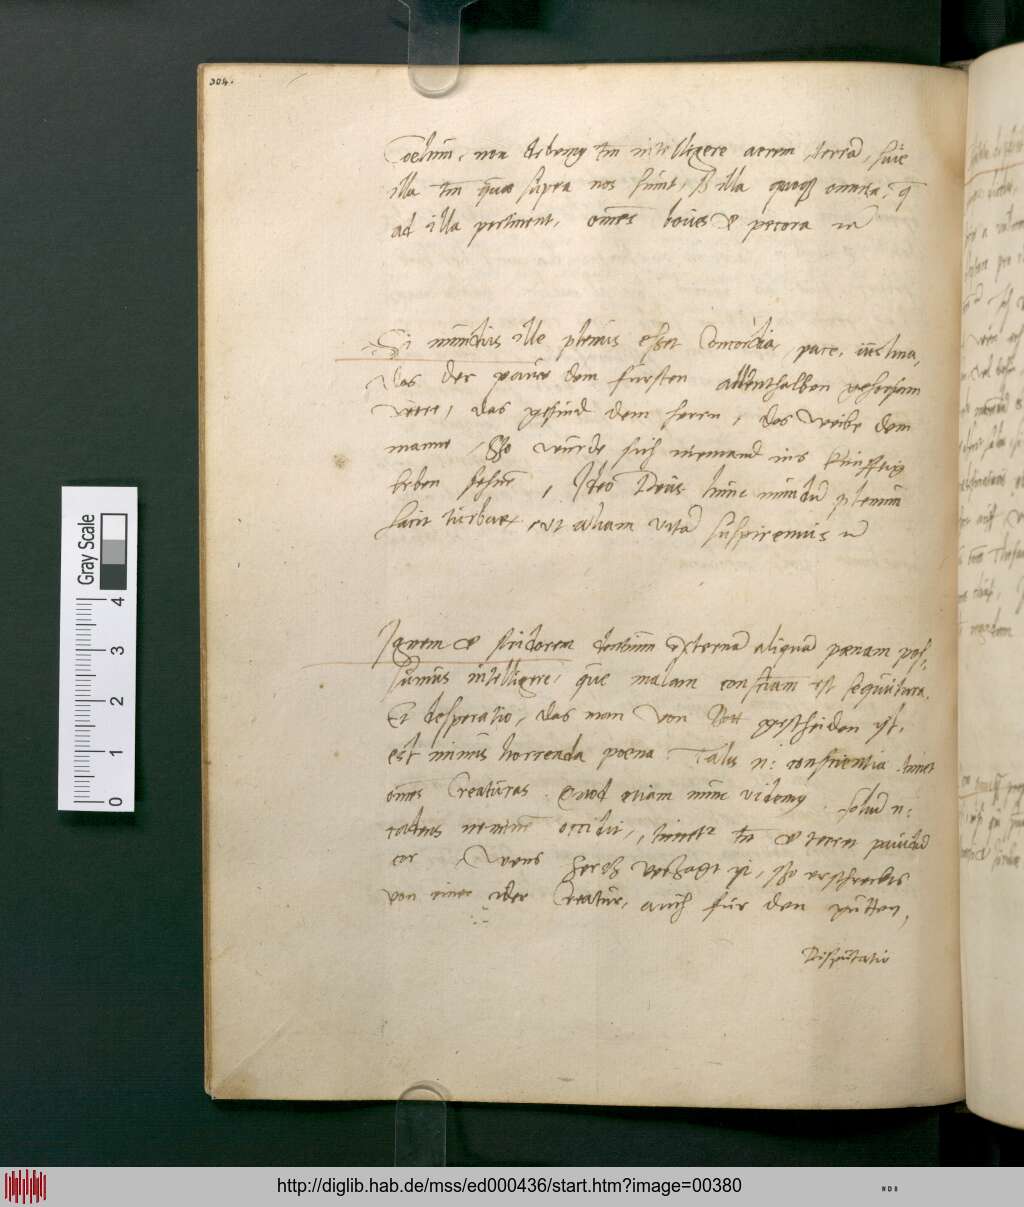 304.
Coelum, non debemus tm̃ intelligere aerem, terrã, sive
illa tm̃ quae supra nos sunt, illa quoque omnia, q̃
ad illa pertinent, om̃es boves & pecora
Si mundus ille plenus esset concordia, pace, iustitia,
Das der paur dem fursten allenthalben gehorsam
were, das gesind dem herrn, das weibe dem
manne, Sso wurde sich niemand ins kunfftig
leben sehnẽ, Ideo Deus hunc mundũ plenum
sinit turbar̃, ut aliam vitã suspiremus
Ignem & stridorem dentium externã aliquã pœnam pos,
sumus intelligere, que malam consc̃iam est sequutura.
Et desperatio, das man von Gott gescheiden ist,
est nimis horrenda poena. Talis n: conscientia timet
om̃es Creaturas. Quod etiam nunc videmus. n:
neminẽ occidit, tm̃ & terret pavidũ
cor. Wens hertz verzagt ist, sso erschreckts
von einer ider Creatur, auch für den gutten,
Disputatio
Gray Scale
4
3
2
1
0
http://diglib.hab.de/mss/ed000436/start.htm?image=00380